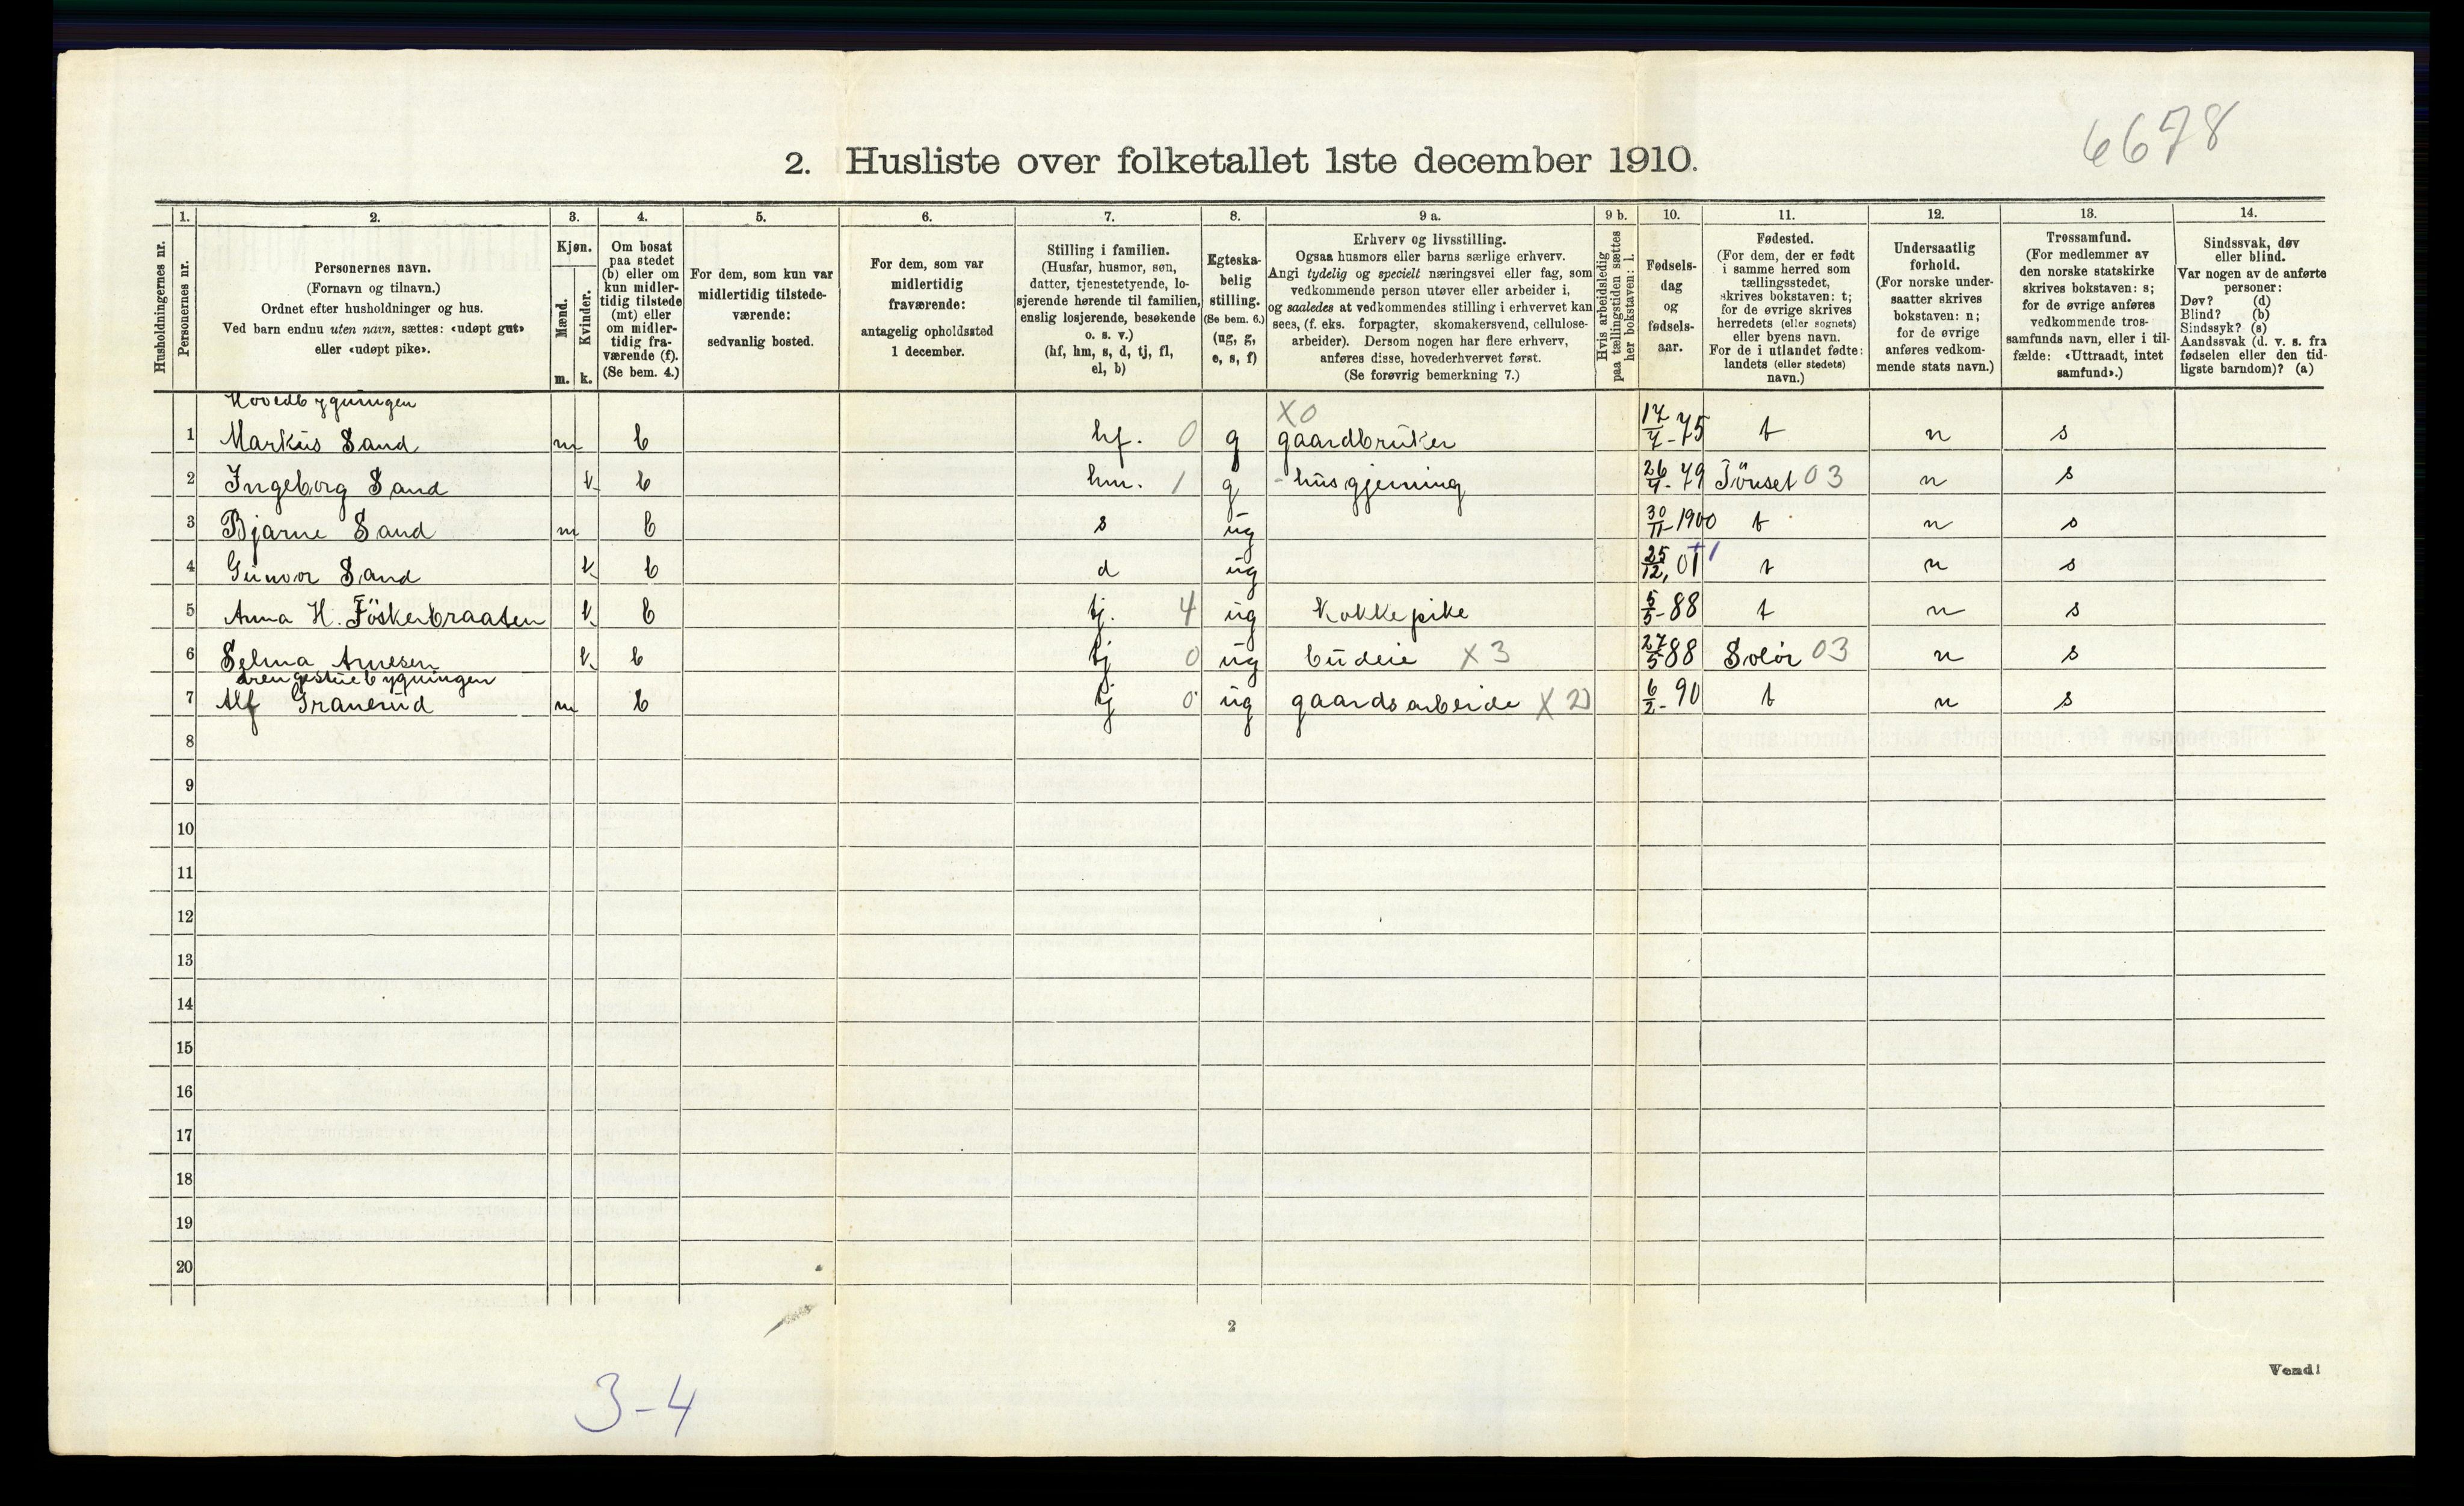 6678
2. Husliste over folketallet 1ste december 1910.
Husholdningernes nr.
1.
Personernes nr.
2.
Personernes navn.
(Fornavn og tilnavn.)
Ordnet efter husholdninger og hus.
Ved barn endnu uten navn, sættes: «udøpt gut»
eller «udøpt pike».
3.
Kjøn.
Mænd.
m.
Kvinder.
k.
4.
Om bosat
paa stedet
(b) eller om
kun midler-
tidig tilstede
(mt) eller
om midler-
tidig fra-
værende (f).
(Se bem. 4.)
5.
For dem, som kun var
midlertidig tilstede-
værende:
sedvanlig bosted.
6.
For dem, som var
midlertidig
fraværende:
antagelig opholdssted
1 december.
7.
Stilling i familien.
(Husfar, husmor, søn,
datter, tjenestetyende, lo-
sjerende hørende til familien,
enslig losjerende, besøkende
o. s. v.)
(hf, hm, s, d, tj, fl,
el, b)
8.
Egteska-
belig
stilling.
(Se bem. 6.)
(ug, g,
e, s, f)
9 a.
Erhverv og livsstilling.
Ogsaa husmors eller barns særlige erhverv.
Angi tydelig og specielt næringsvei eller fag, som
vedkommende person utøver eller arbeider i,
og saaledes at vedkommendes stilling i erhvervet kan
sees, (f. eks. forpagter, skomakersvend, cellulose-
arbeider). Dersom nogen har flere erhverv,
anføres disse, hovederhvervet først.
(Se forøvrig bemerkning 7.)
9 b.
Hvis arbeidsledig
paa tællingstiden sættes
her bokstaven: l.
10.
Fødsels-
dag
og
fødsels-
aar.
11.
Fødested.
(For dem, der er født
i samme herred som
tællingsstedet,
skrives bokstaven: t;
for de øvrige skrives
herredets (eller sognets)
eller byens navn.
For de i utlandet fødte:
landets (eller stedets)
navn.)
12.
Undersaatlig
forhold.
(For norske under-
saatter skrives
bokstaven: n;
for de øvrige
anføres vedkom-
mende stats navn.)
13.
Trossamfund.
(For medlemmer av
den norske statskirke
skrives bokstaven: s;
for de øvrige anføres
vedkommende tros-
samfunds navn, eller i til-
fælde: «Uttraadt, intet
samfund».)
14.
Sindssvak, døv
eller blind.
Var nogen av de anførte
personer:
Døv? (d)
Blind? (b)
Sindssyk? (s)
Aandssvak (d. v. s. fra
fødselen eller den tid-
ligste barndom)? (a)
Hovedbygningen
1 Markus Sand m b hf. 0 g X0 gaardbruker 17/7-75 t n s
2 Ingeborg Sand k b hm. 1 g - husgjerning 26/4-79 Tönset 03 n s
3 Bjarne Sand m b s ug 30/11-1900 t n s
4 Gunvor Sand k b d ug 25/12, 01 +1 t n s
5 Anna H. Föskerbraaten k b tj. 4 ug Kokkepike 5/5-88 t n s
6 Selma Arnesen k b tj 0 ug budeie X 3 27/5 88 Solör 03 n s
drengestuebygningen
7 Alf Granerud m b tj 0 ug gaardsarbeide X 2 6/2-90 t n s
8
9
10
11
12
13
14
15
16
17
18
19
20
2
Vend!
3-4